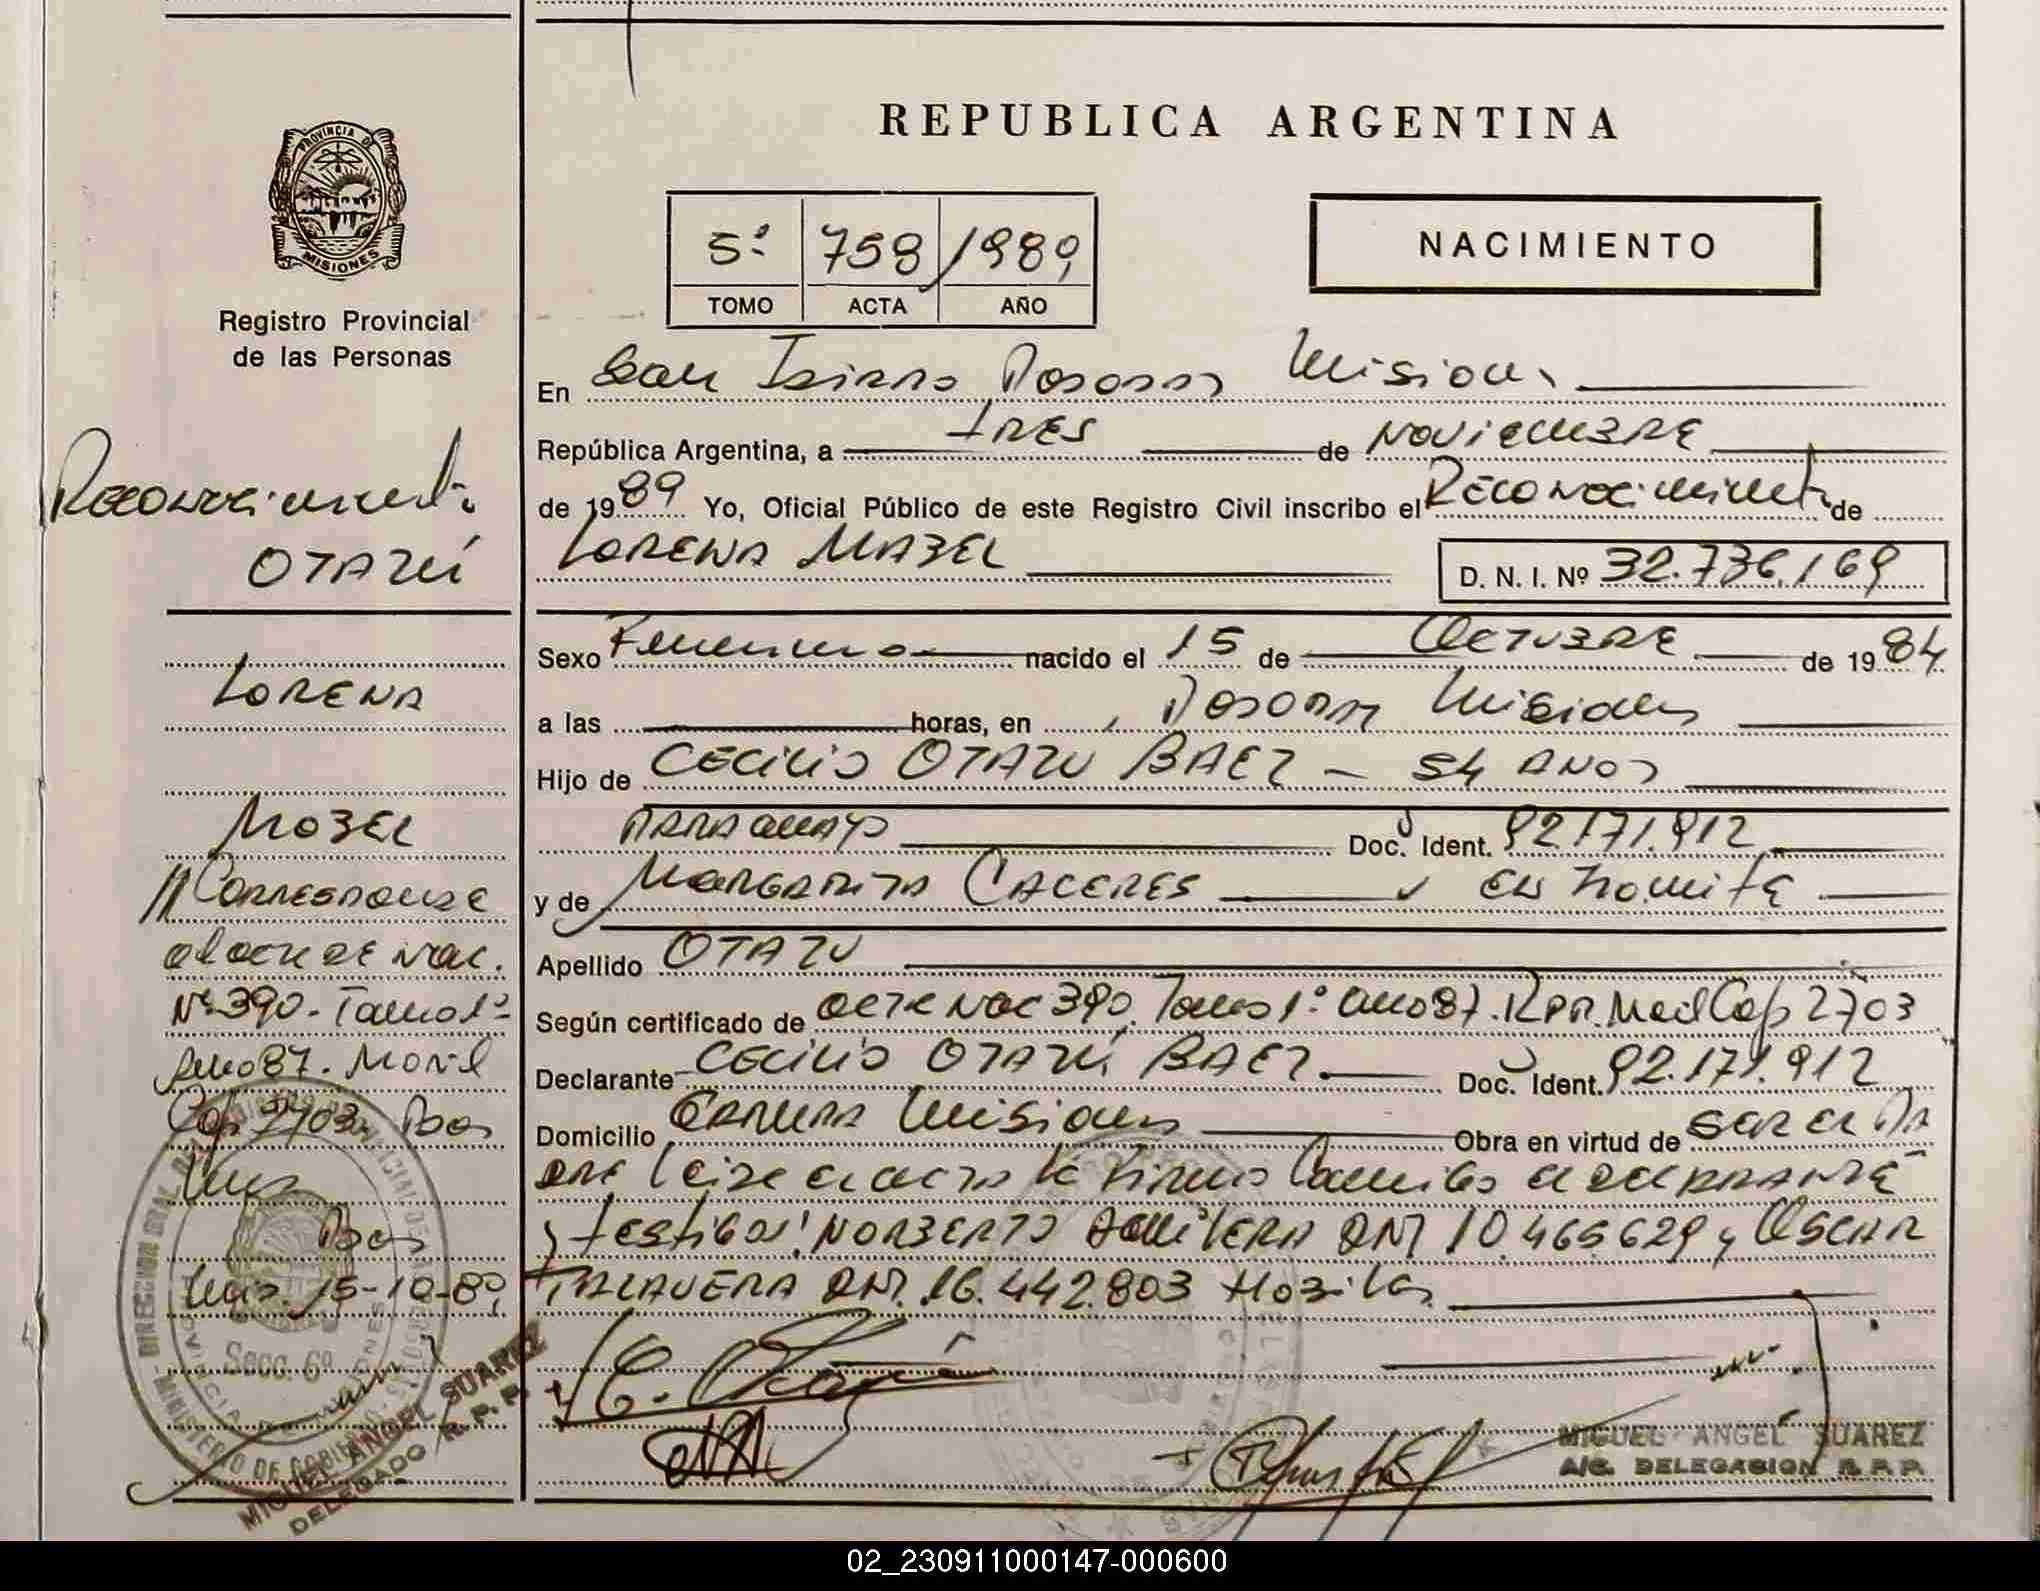 REPUBLICA ARGENTINA
PROVINCIA DE
MISIONES
Registro Provincial
de las Personas
5º 758 1989
TOMO ACTA AÑO
NACIMIENTO
Reconocimiento
OTAZÚ
LORENA
MABEL
// Corresponde
al acta de nac.
Nº 390 - Tomo 1º
Año 87. Movil
Cap 2703 Pos
Mis
Pos
Mis. 15-10-89
En San Isidro Posadas Misiones
República Argentina, a TRES de NOVIEMBRE
de 1989 Yo, Oficial Público de este Registro Civil inscribo el Reconocimiento de
LORENA MABEL D. N. I. Nº 32.736.169
Sexo Femenino nacido el 15 de OCTUBRE de 1984
a las horas, en Posadas Misiones
Hijo de CECILIO OTAZU BAEZ - 54 AÑOS
PARAGUAYO Doc. Ident. 92.171.912
y de MARGARITA CACERES en tramite
Apellido OTAZU
Según certificado de acta Nac 390. Tomo 1º año 87. Mov Cap 2703
Declarante CECILIO OTAZÚ BAEZ Doc. Ident. 92.171.912
Domicilio Misiones Obra en virtud de ser el Pa
dre Leida el acta la firma conmigo el declarante
y testigos: NORBERTO DNI 10.465.629 y OSCAR
TALAVERA DNI. 16.442.803 Habiles
DIRECCION GRAL. DEL
MINISTERIO DE GOBIERNO
Secc. 6ª
MIGUEL ANGEL SUAREZ
DELEGADO R. P. P.
MIGUEL ANGEL SUAREZ
A/C. DELEGACION R. P. P.
02_230911000147-000600